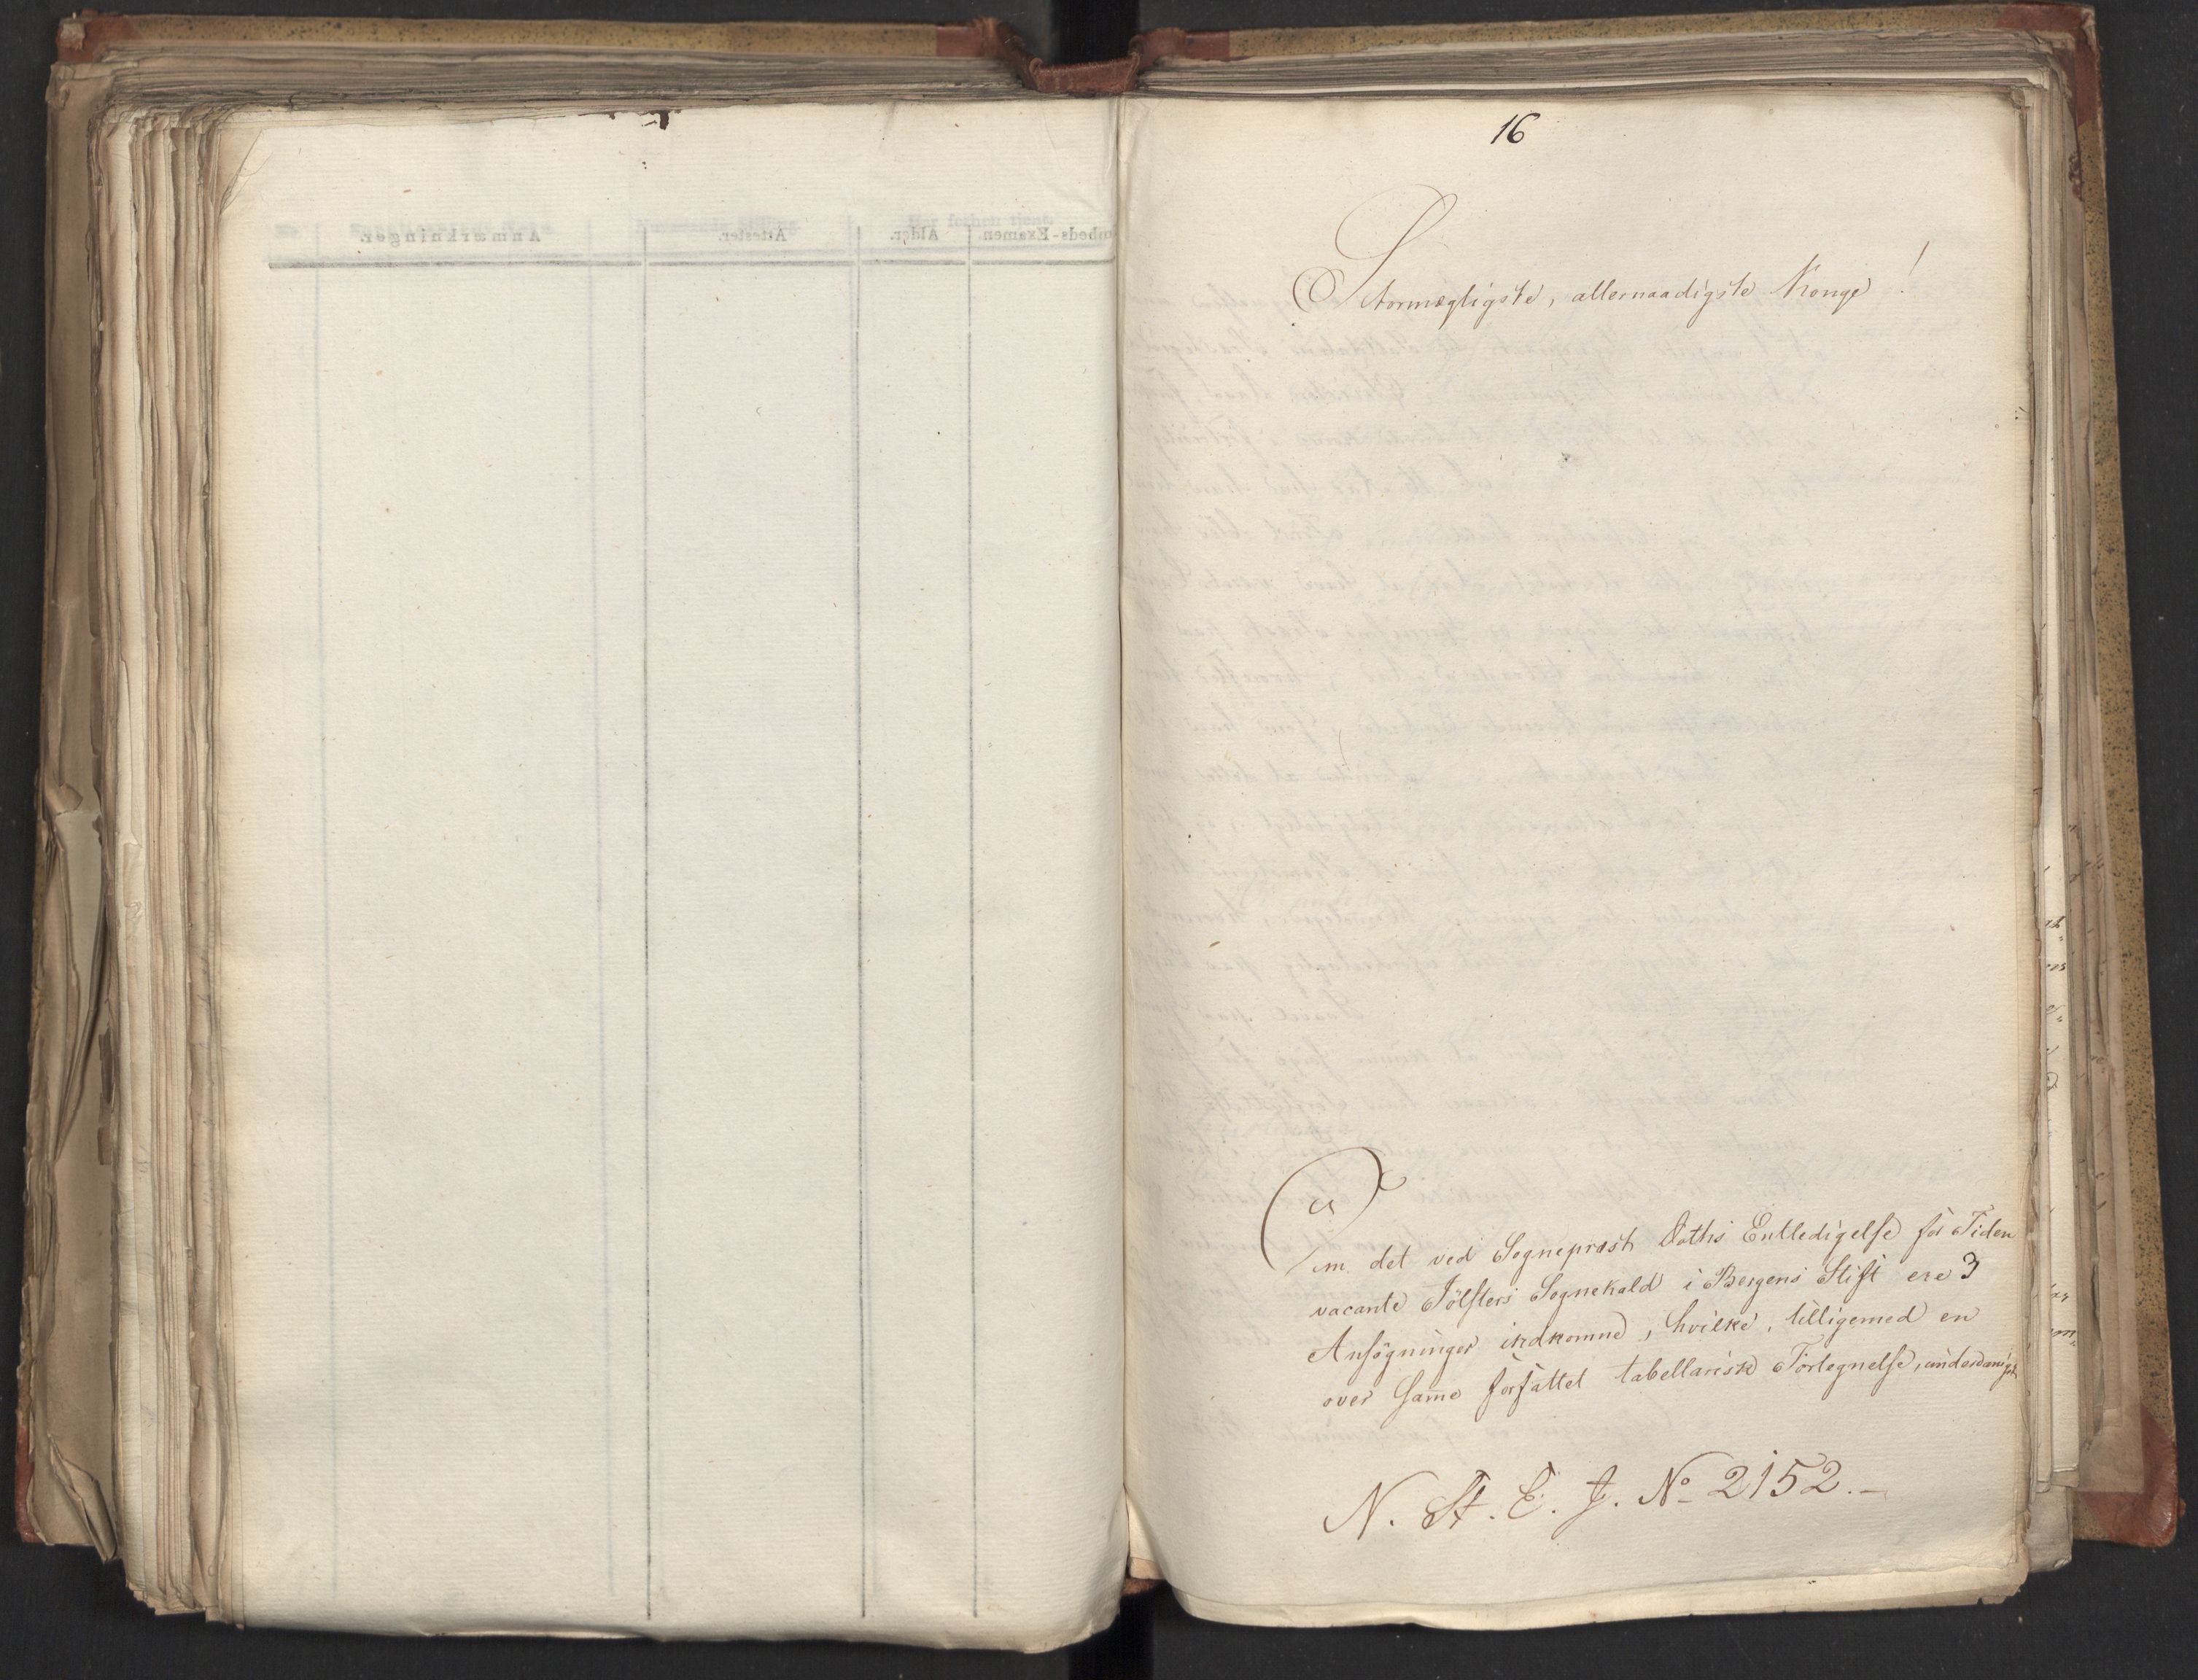 16
Stormægtigste, allernaadigste Konge!
Om det ved Sognepræst Daths Entledigelse for Tiden
vacante Jölsters Sognekald i Bergens Stift ere 3
Ansögninger indkomne, hvilke, tilligemed en
over samme forfattet tabellarisk Fortegnelse, underdanigst
N. St. E. J. No 2152.-